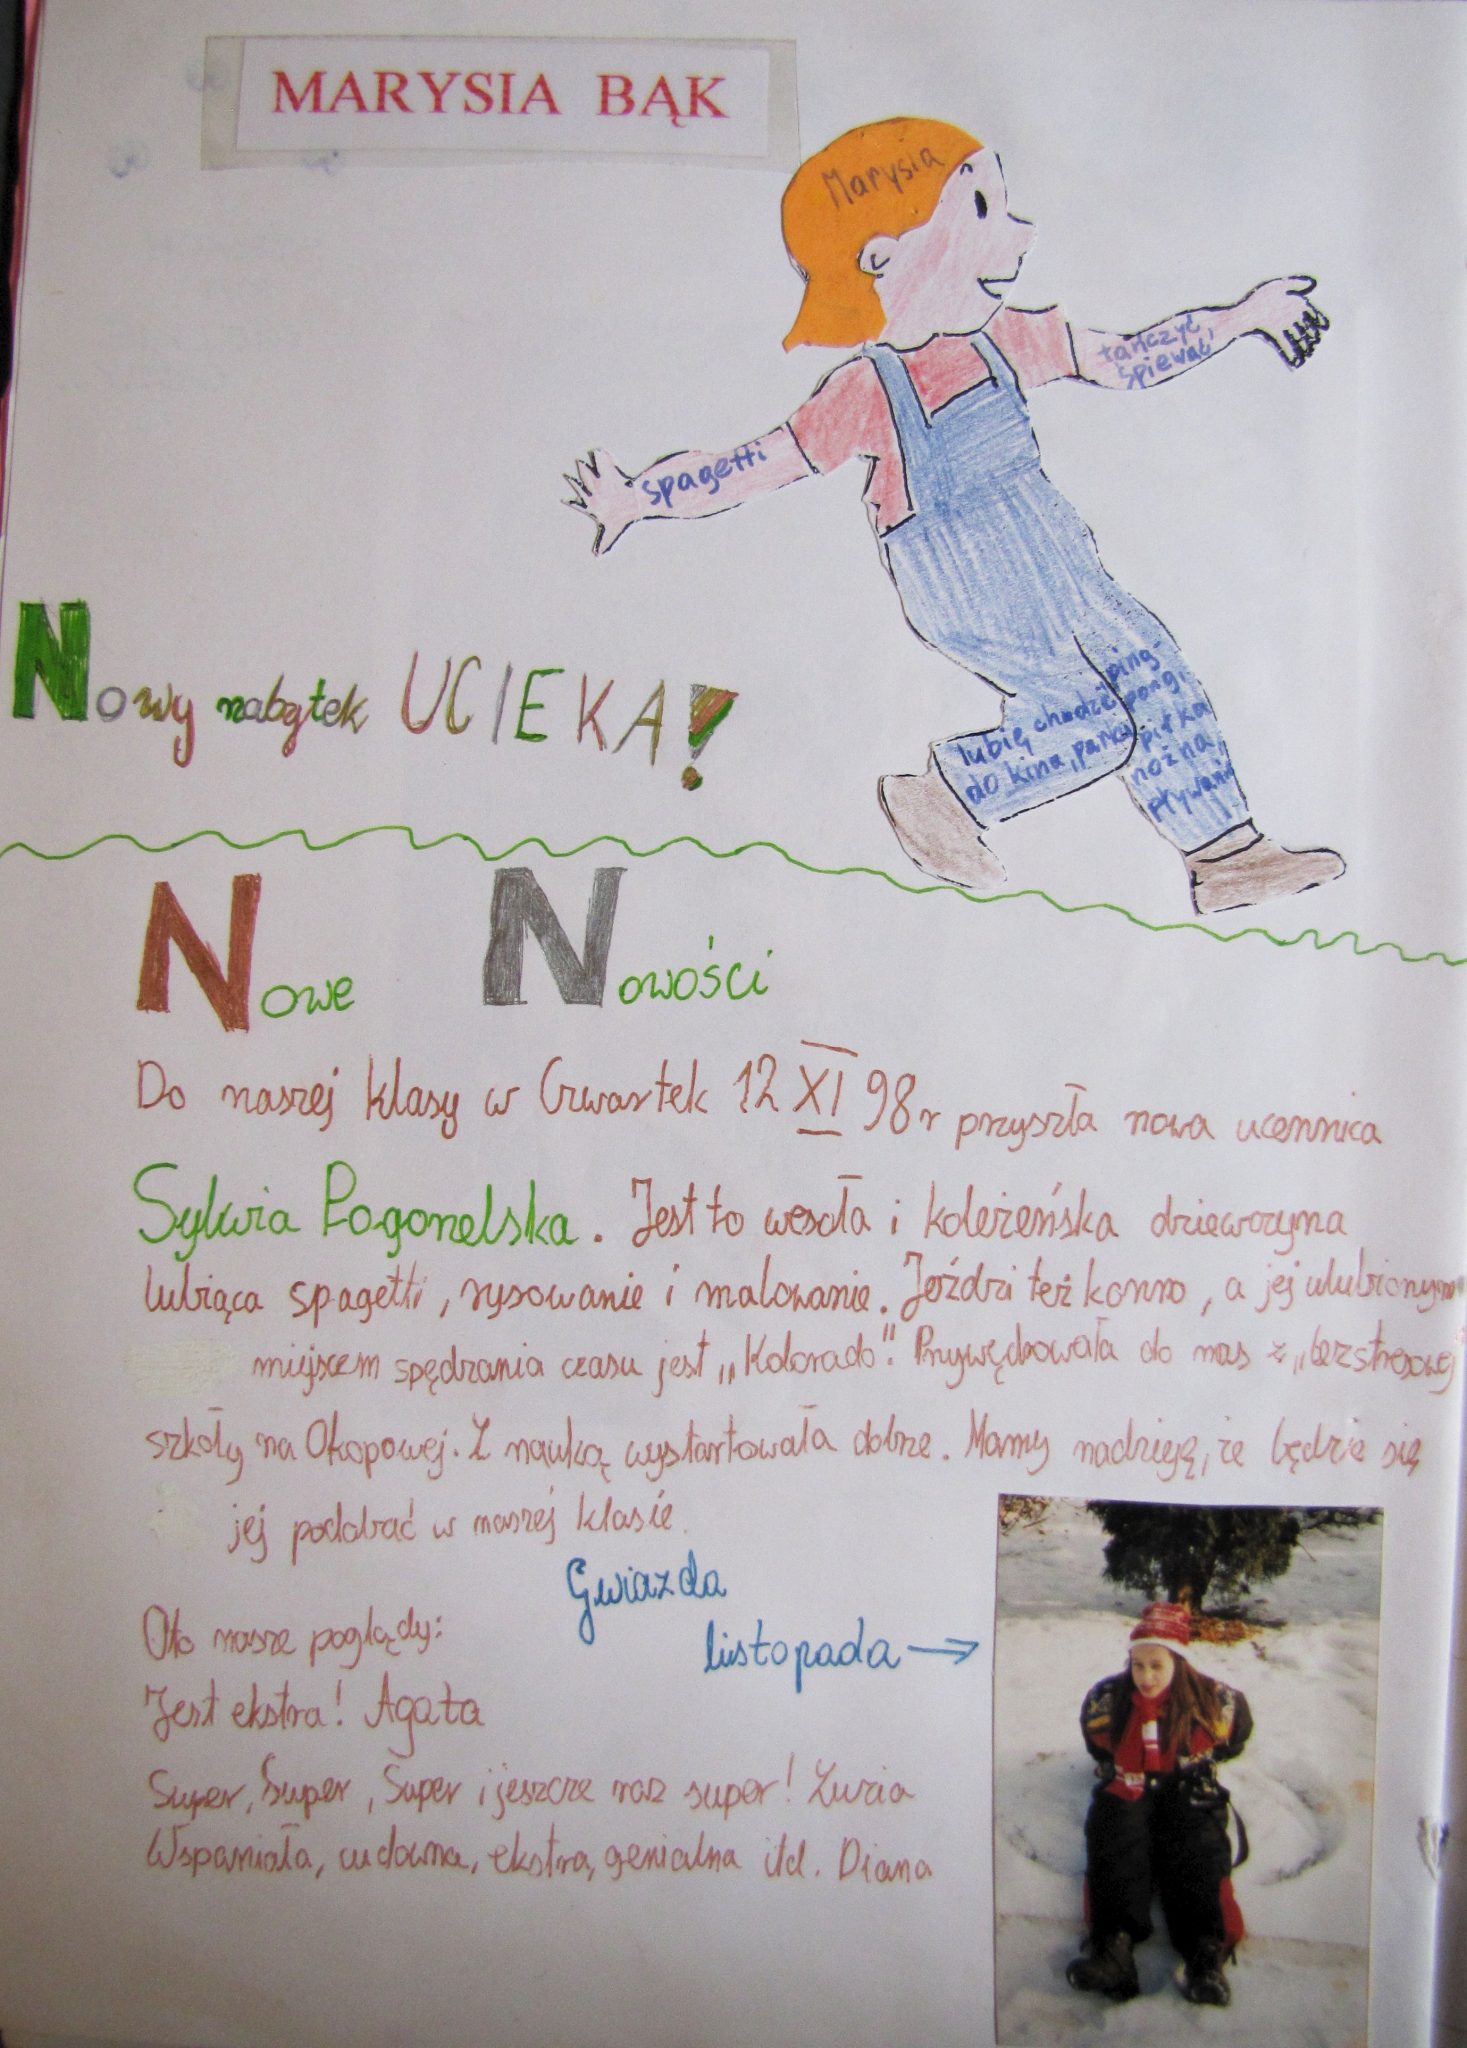 MARYSIA BĄK
Marysia
tańczyć,
śpiewać
spagetti
Nowy nabytek UCIEKA!
lubię chodzić
do kina, parku
ping-
pongi,
piłka
nożna,
pływanie
Nowe Nowości
Do naszej klasy w Czwartek 12 XI 98 r przyszła nowa uczennica
Sylwia Pogonelska. Jest to wesoła i koleżeńska dziewczyna
lubiąca spagetti, rysowanie i malowanie. Jeździ też konno, a jej ulubionym
miejscem spędzania czasu jest „Kolorado". Przywędrowała do nas z „bezstresowej
szkoły na Okopowej. Z nauką wystartowała dobrze. Mamy nadzieję, że będzie się
jej podobać w naszej klasie.
Gwiazda
listopada →
Oto nasze poglądy:
Jest ekstra! Agata
Super, Super, Super i jeszcze raz super! Zuzia
Wspaniała, cudowna, ekstra, genialna itd. Diana